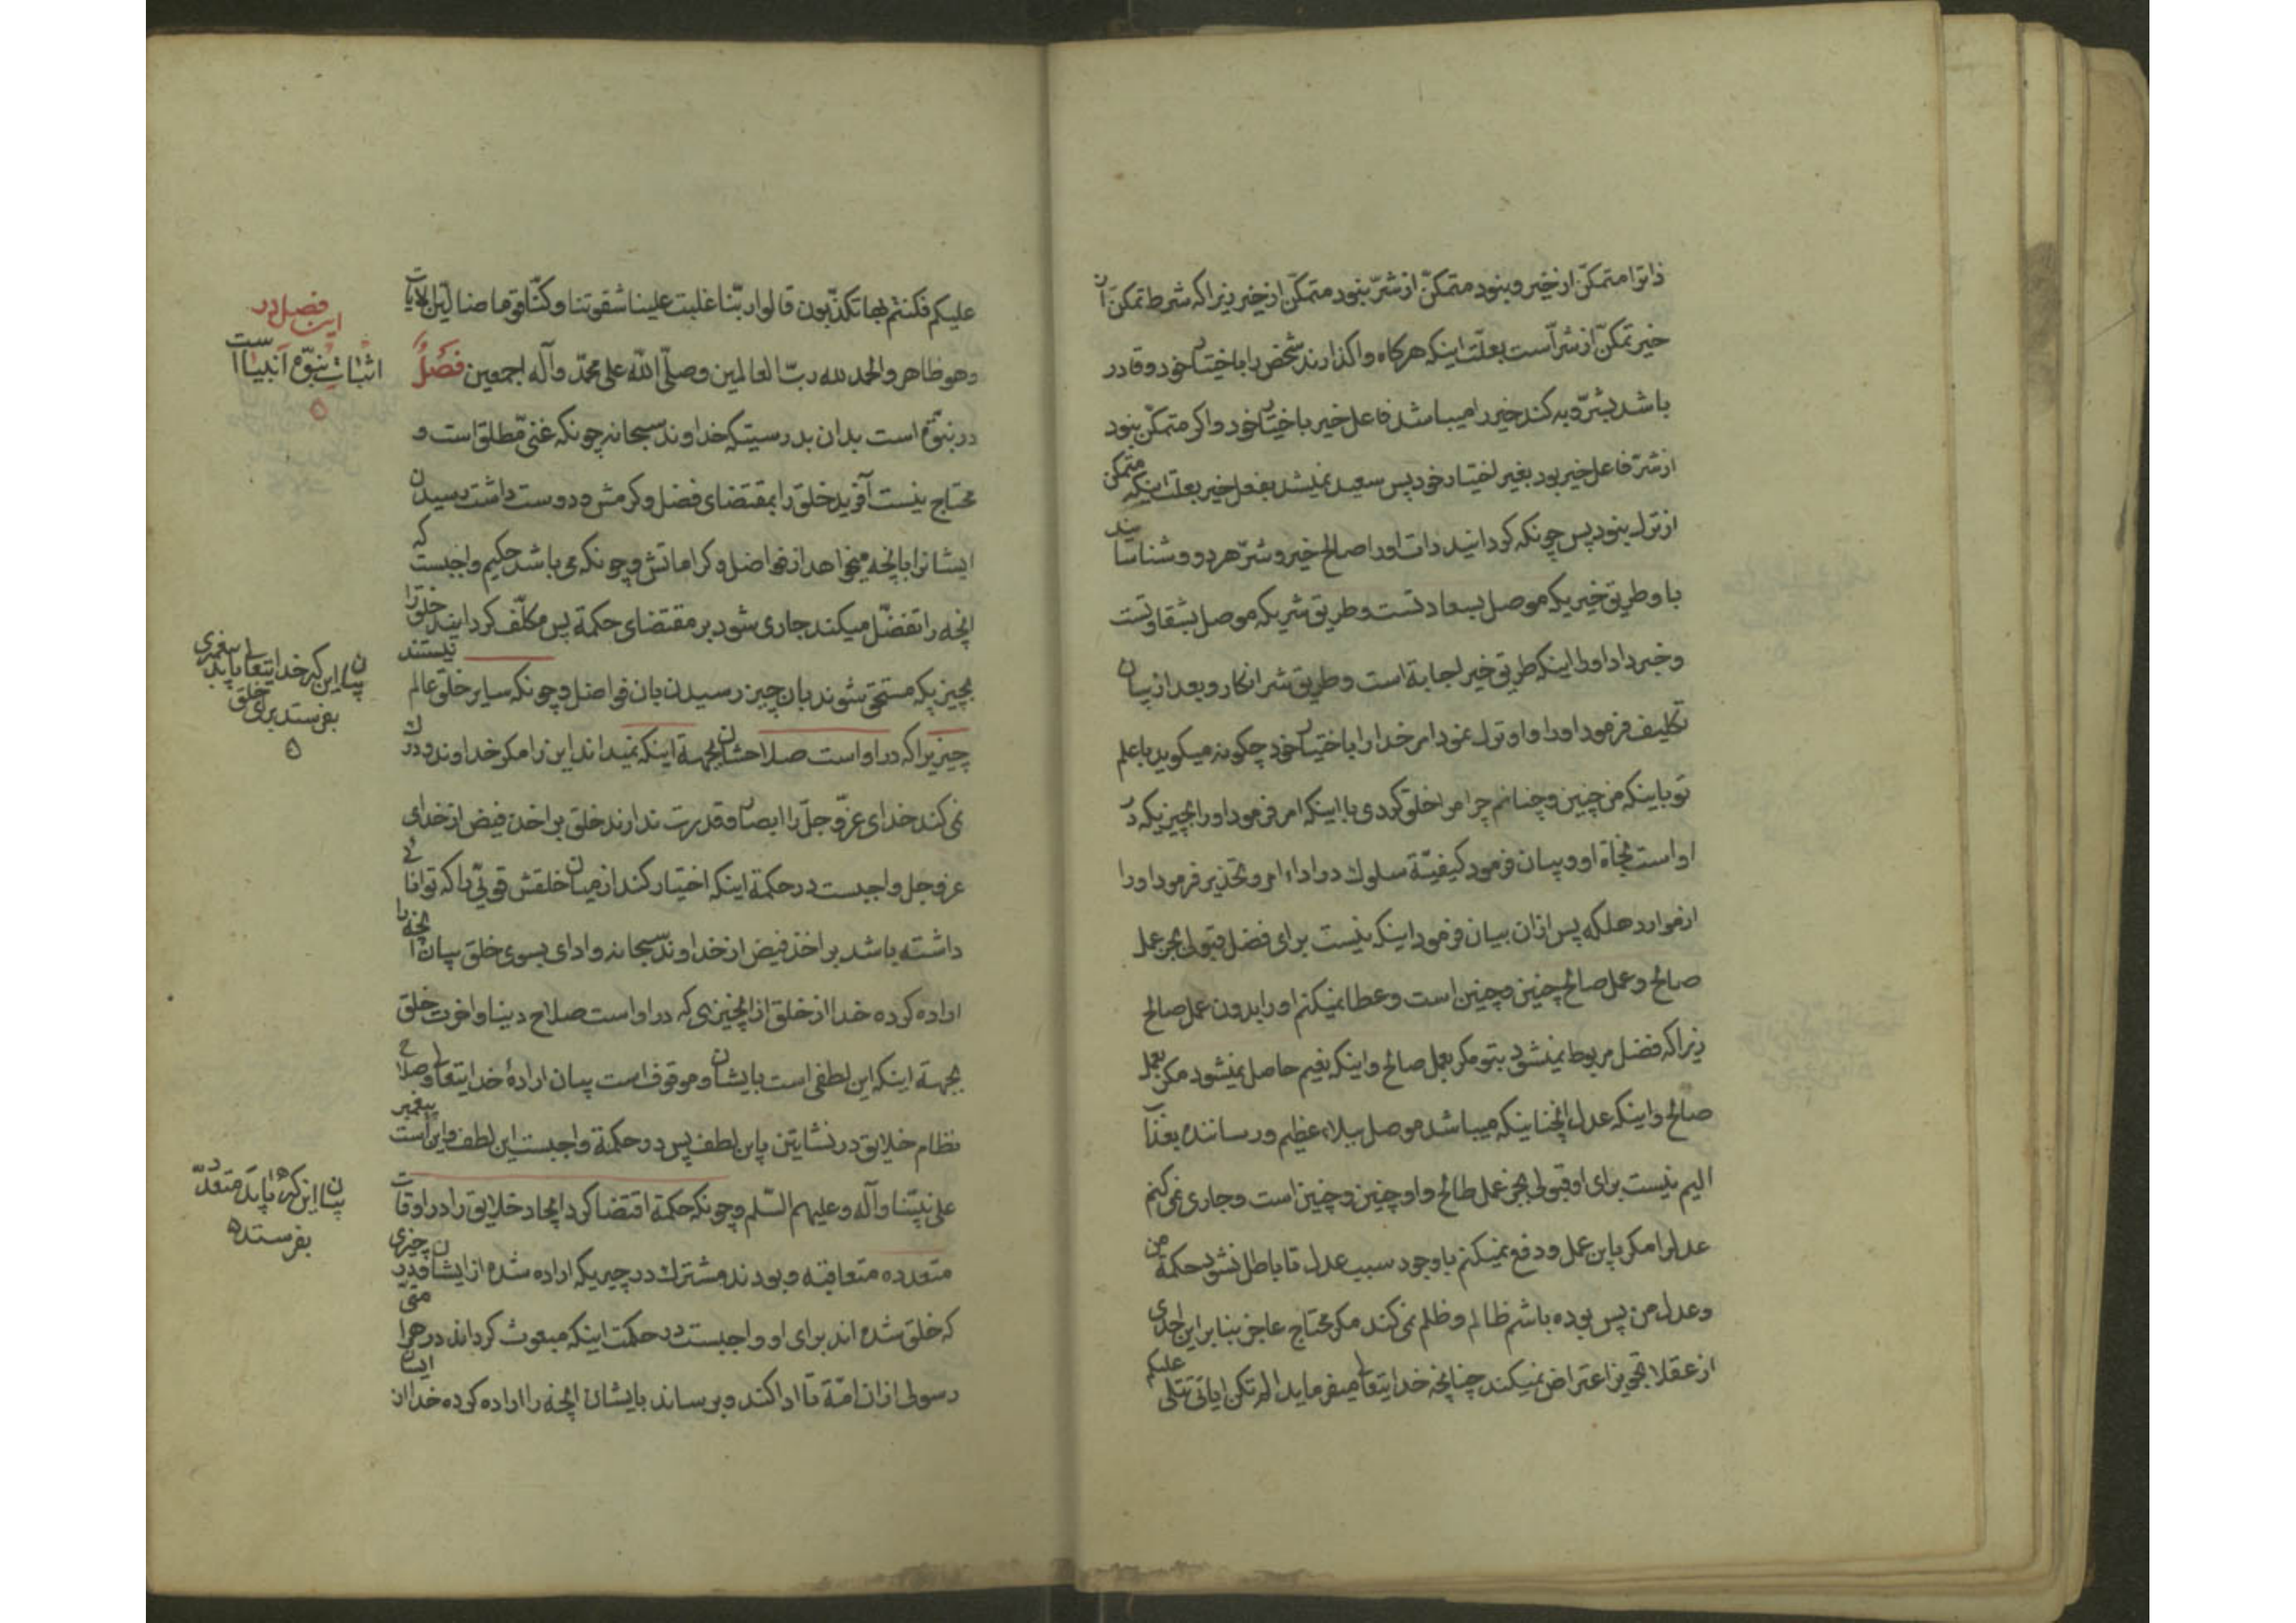 ذاتوا متمکّن از خیر و بنود متمکّن از شرّ بنود متمکّن از خیر زیرا که شرط تمکن از
خیر تمکّن از شرّ است بعلّت اینکه هرکاه واکذارند شخص را باختیار خود و قادر
باشد بشرّ و به کند خیر را میباشد فاعل خیر باختیار خود و اکر متمکّن بنود
از شرّ فاعل خیر بود بغیر اختیار خود پس سعید نمیشد بفعل خیر بعلت اینکه متمکن
از ترک بنود پس چونکه کردانید ذات اورا صالح خیر و شرّ هر دو و شناسانید
باو طریق خیریکه موصل بسعادتست و طریق شریکه موصل بشقاوتست
و خبر داد اورا اینکه طریق خیر اجابة است و طریق شر انکار و بعد از بیان
تکلیف فرمود اورا و او ترک نمود امر خدا را باختیار خود چکونه میکوید با علم
تو باینکه من چنین و چنانم چرا مرا خلق کردی با اینکه امر فرمود اورا بچیزیکه در
او است نجاة او و بیان فرمود کیفیّة سلوک در اداء امر و تحذیر فرمود اورا
از موارد هلکه پس از ان بیان فرمود اینکه نیست برای فضل قبولی بجز عمل
صالح و عمل صالح چنین و چنین است و عطا نمیکنم اورا بدون عمل صالح
زیرا که فضل مربوط نمیشود بتو مکر بعمل صالح و اینکه نعیم حاصل نمیشود مکر بعمل
صالح و اینکه عدل انچنانیکه میباشد موصل ببلاء عظیم و رساننده بعذاب
الیم نیست برای او قبولی بجز عمل طالح و او چنین و چنین است و جاری نمی کنم
عدل را مکر باین عمل و دفع نمیکنم با وجود سبب عدل تا باطل نشود حکمة من
و عدل من پس بوده باشم ظالم و ظلم نمی کند مکر محتاج عاجز بنابر این احدی
از عقلا تجویز اعتراض نمیکند چنانچه خدایتعالی میفرماید الم تکن ایاتی تتلی علیکم
علیکم فکنتم بها تکذّبون قالوا ربّنا غلبت علینا شقوتنا و کنّا قوما ضالین الایات
و هو ظاهر و الحمد لله ربّ العالمین و صلّی الله علی محمّد و آله اجمعین فصلٌ
در نبوّة است بدان بدرستیکه خداوند سبحانه چونکه غنیّ مطلق است و
محتاج نیست آفرید خلق را بمقتضای فضل و کرمش و دوست داشت رسیدن
ایشانرا بانچه میخواهد از فواضل و کراماتش و چونکه می باشد حکیم واجبست که
انچه را تفضّل میکند جاری شود بر مقتضای حکمة پس مکلّف کردانید خلق را
بچیزیکه مستحق شوند بان چیز رسیدن بان فواضل و چونکه سایر خلق عالم نیستند
چیزیرا که در او است صلاحشان بجهة اینکه نمیداند این را مکر خداوند و درک
نمی کند خدای عزّ و جلّ را ابصار و قدرت ندارند خلق بر اخذ فیض از خدای
عز و جل واجبست در حکمة اینکه اختیار کند از میان خلقش قویّی را که توانائی
داشته باشد بر اخذ فیض از خداوند سبحانه و ادای بسوی خلق بیان انچه را
اراده کرده خدا از خلق از انچیزی که در او است صلاح دینا و اخرت خلق
بجهة اینکه این لطفی است بایشان و موقوفست بیان ارادهٔ خدایتعالی و صلاح
نظام خلایق در نشاتین باین لطف پس در حکمة واجبست این لطف و این است پیغمبر
علی نبیّنا و آله و علیهم السّلم و چونکه حکمة اقتضا کرد ایجاد خلایق را در اوقات
متعدده متعاقبه و بودند مشترک در چیزیکه اراده شده از ایشان و در چیزی
که خلق شده اند برای او واجبست در حکمت اینکه مبعوث کرداند در هر امّتی
رسولی از ان امّة تا ادا کند و برساند بایشان انچه را اراده کرده خدا از ایشان
فصل در
این
اثبات نبوّة انبیا است
بیان این که خدایتعالی باید پیغمبری
بفرستد برای خلق
بیان این که باید متعدّد
بفرستد